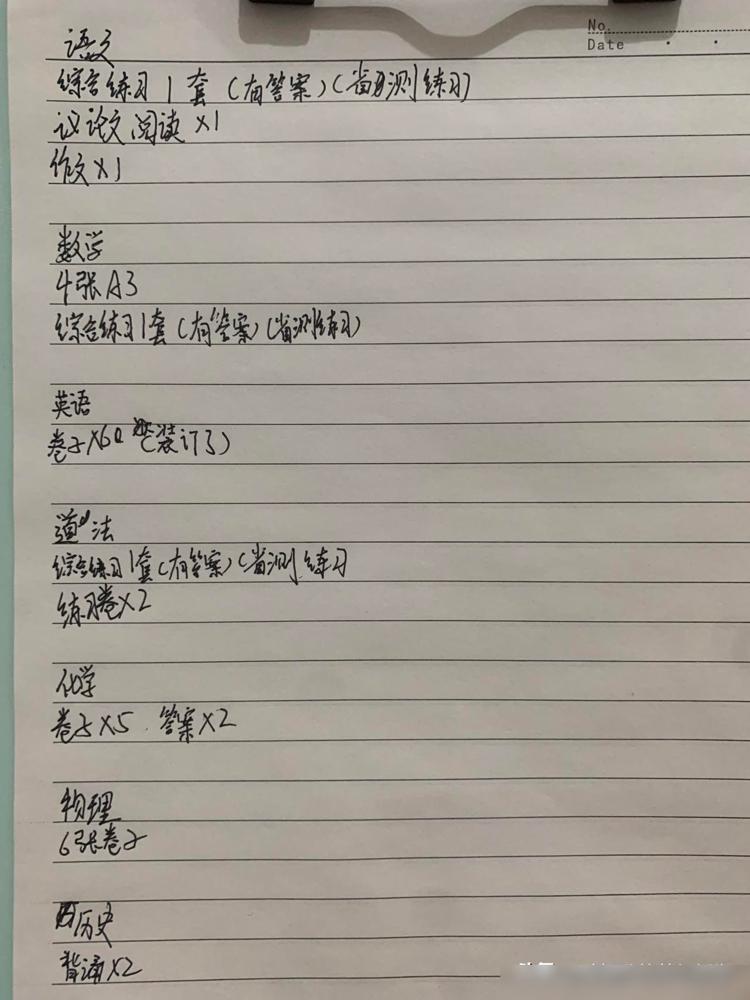 No.
Date
语文
综合练习1套(有答案)(省测练习)
议论文阅读×1
作文×1
数学
4张A3
综合练习1套(有答案)(省测练习)
英语
卷子×6 (装订了)
道法
综合练习1套(有答案)(省测练习
练习卷×2
化学
卷子×5 答案×2
物理
6张卷子
历史
背诵×2